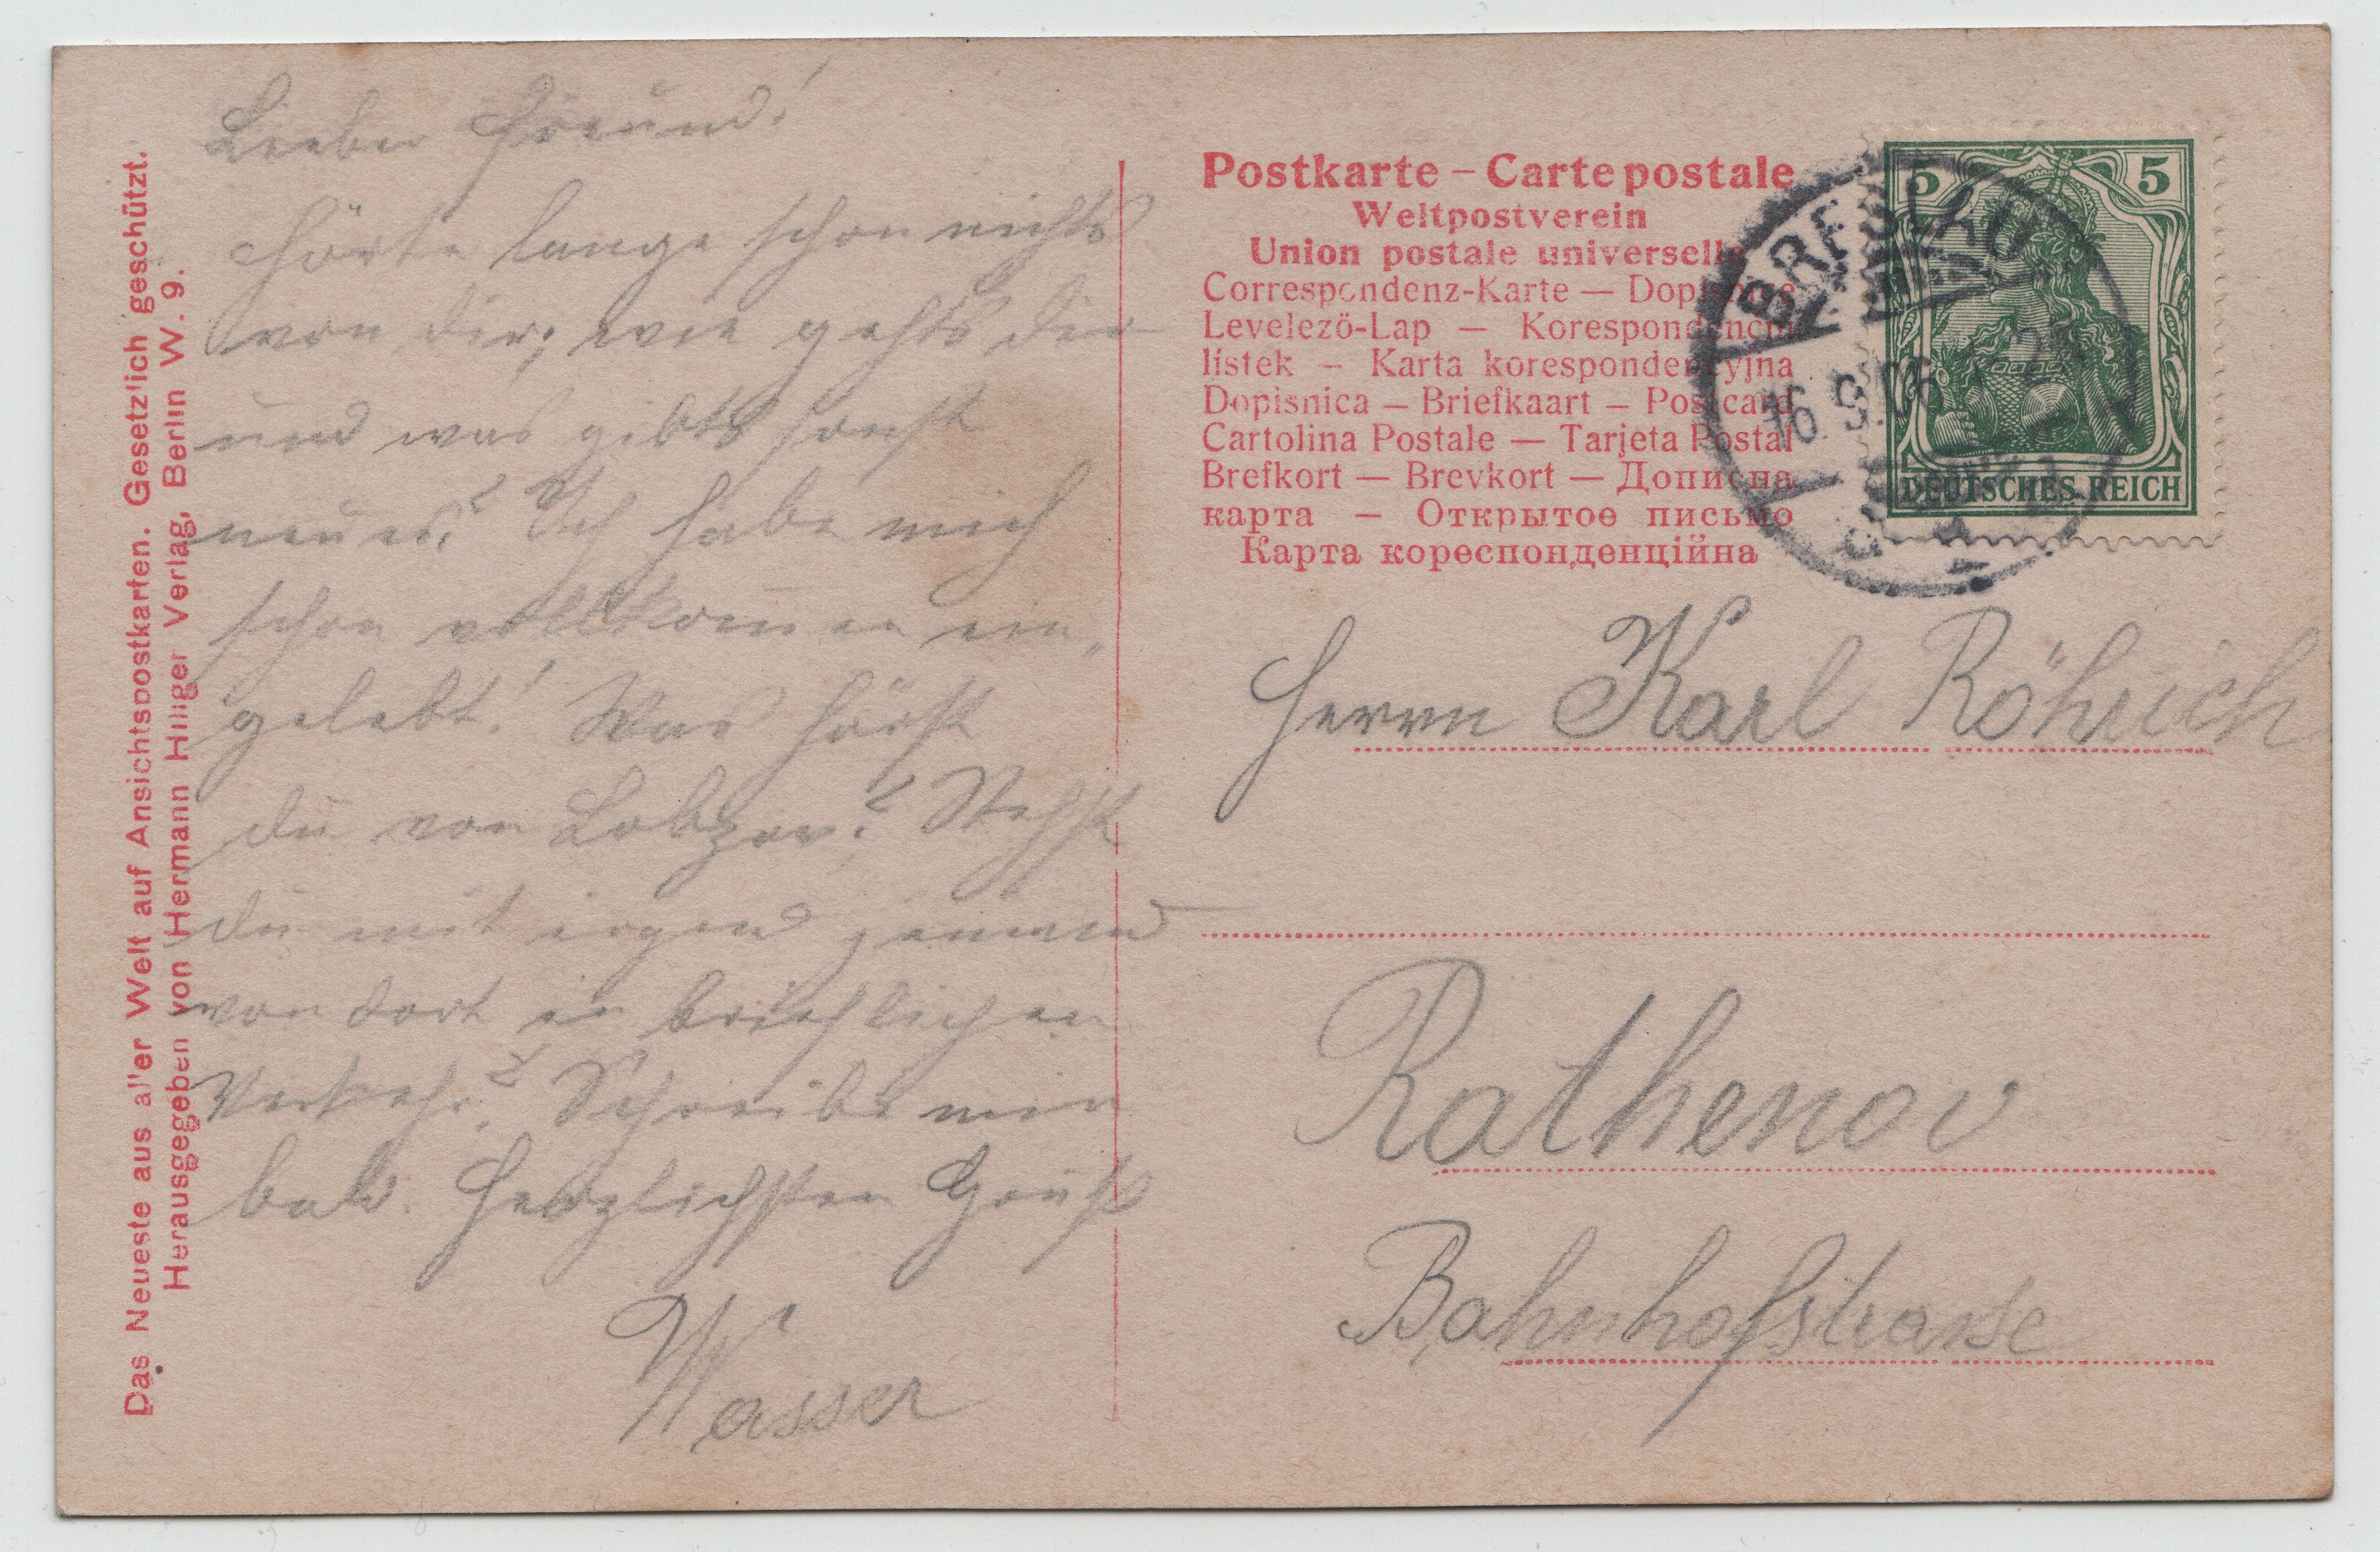 Das Neueste aus aller Welt auf Ansichtspostkarten. Gesetzlich geschützt.
Herausgegeben von Hermann Hillger Verlag, Berlin W. 9.
Lieber Freund!
Hörte lange schon nichts
von dir; wie gehts dir
und was gibts sonst
neues? Ich habe mich
schon vollkom̄en ein-
gelebt! Was hörst
du von Lobzov? Stehst
du mit irgend jemand
von dort in brieflichen
Verkehr? Schreibe mir
bald. Herzlichsten Gruß
Wasser
Postkarte – Carte postale
Weltpostverein
Union postale universelle
Correspondenz-Karte — Dopisnice
Levelezö-Lap — Korespondenční
lístek — Karta korespondencyjna
Dopisnica — Briefkaart — Postcard
Cartolina Postale — Tarjeta Postal
Brefkort — Brevkort — Дописна
карта — Открытое письмо
Карта кореспонденційна
5 5
DEUTSCHES REICH
BRESLAU
16.9.06
Herrn Karl Röhrich
Rathenov
Bahnhofstrasse